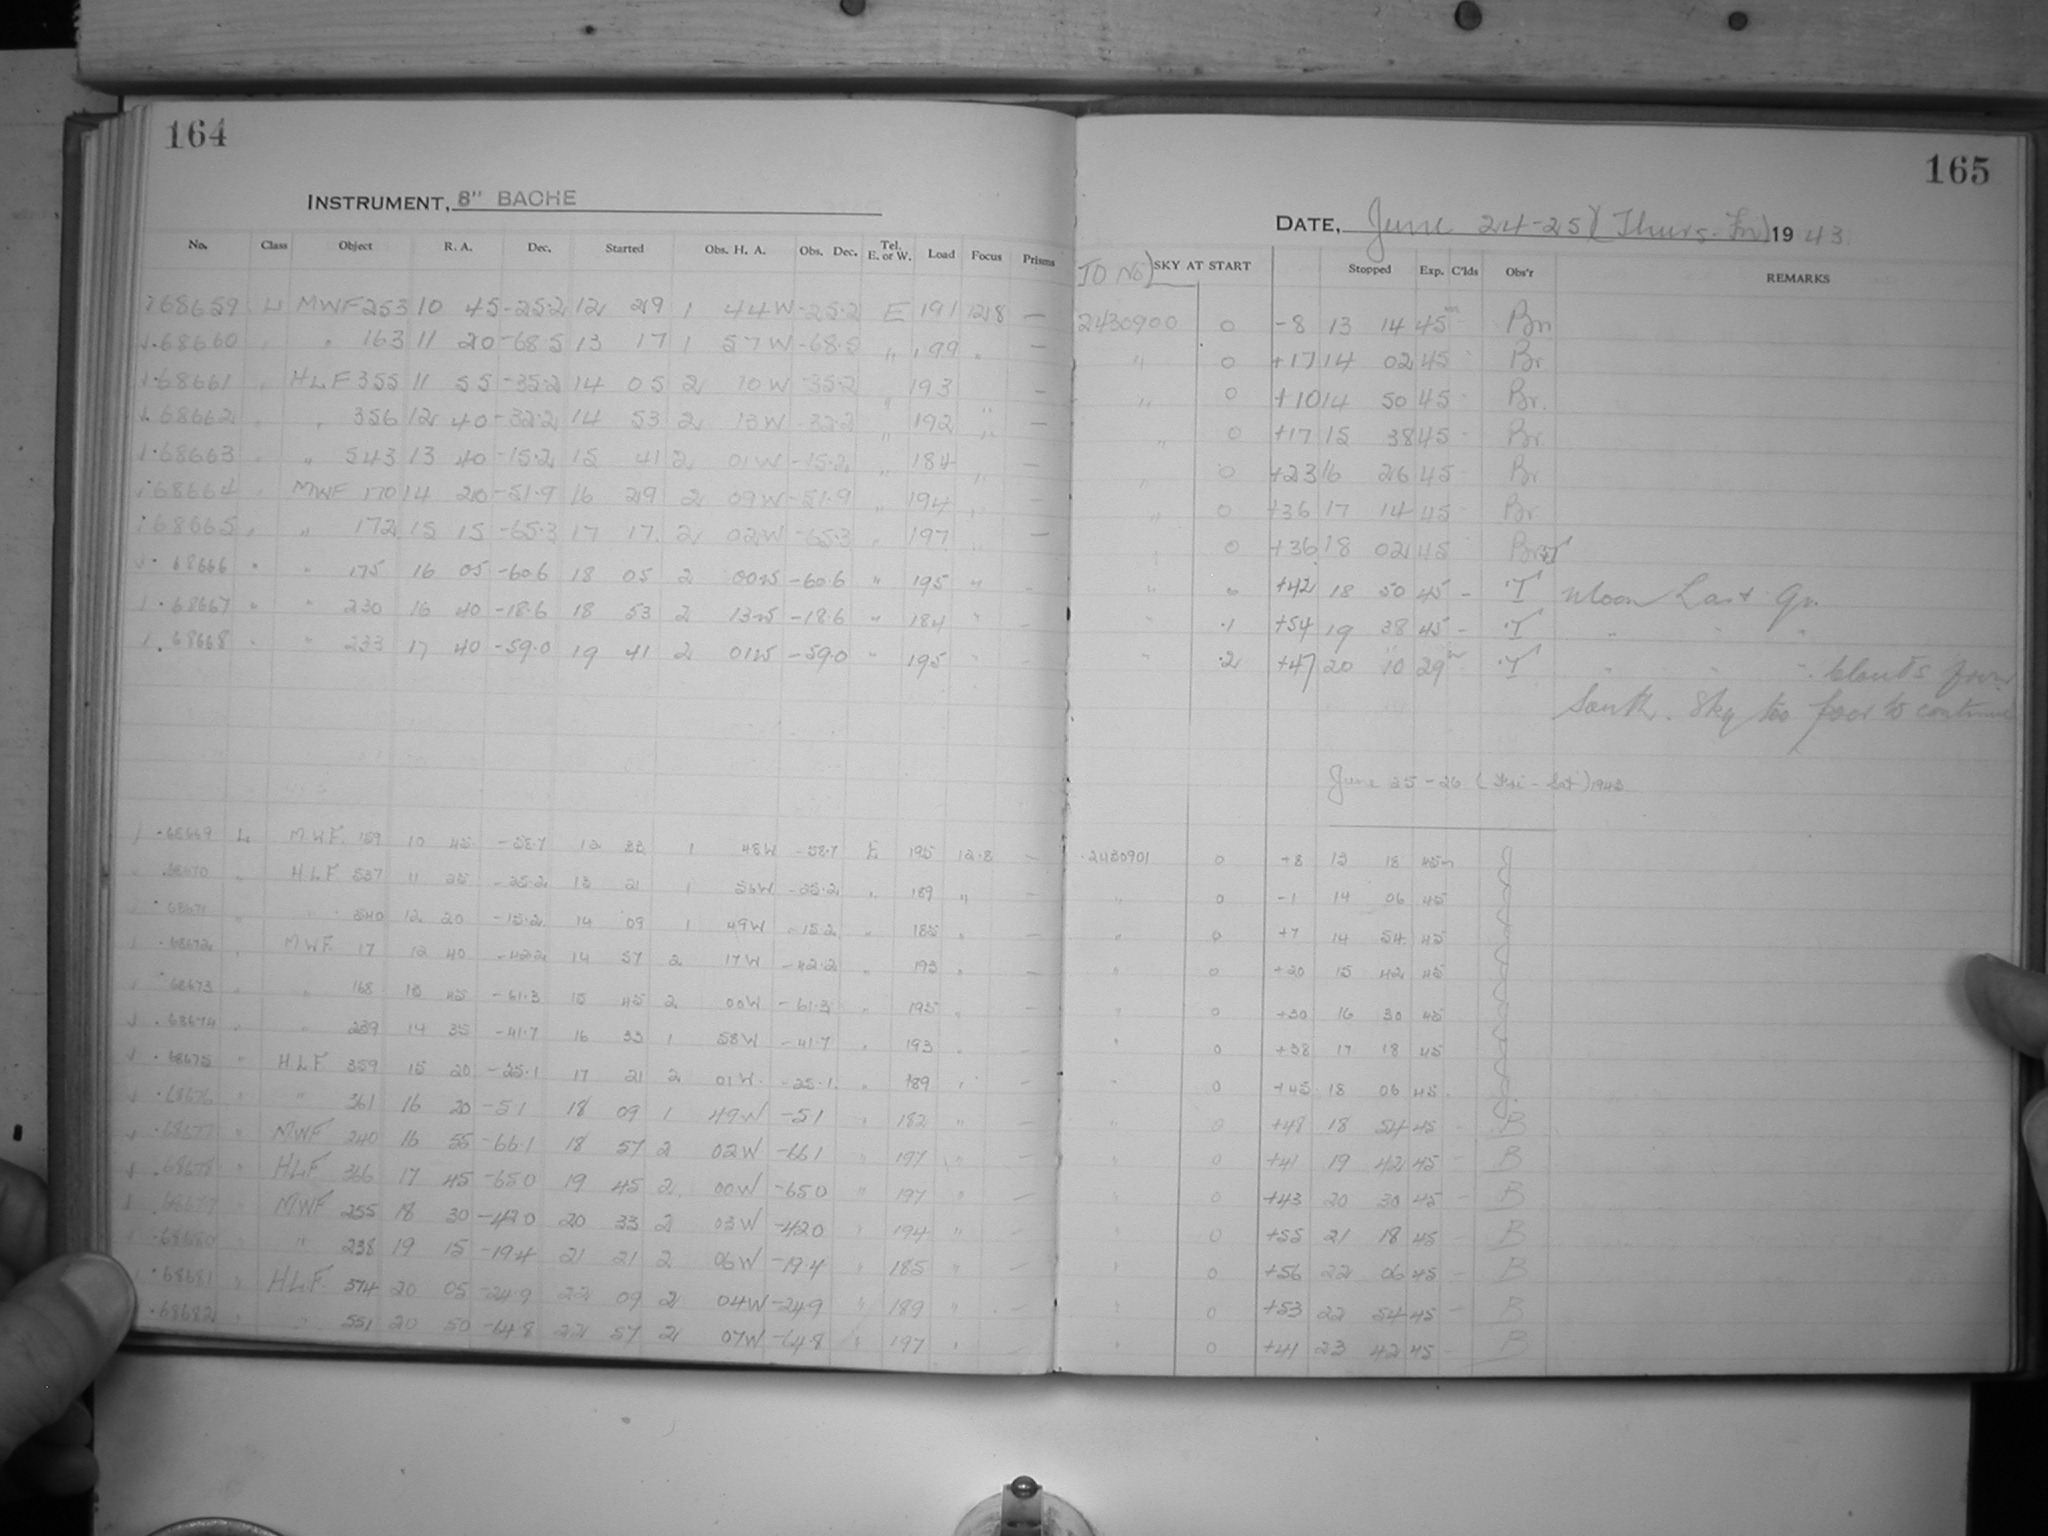 164
INSTRUMENT, 8" BACHE
No. Class Object R. A. Dec. Started Obs. H. A. Obs. Dec. Tel. E. or W. Load Focus Prisms
68659 L MWF 253 10 45 -25.2 12 29 1 44W -25.2 E 191 12.8 —
.68660 " 163 11 20 -68.5 13 17 1 57W -68.5 " 199 " —
.68661 HLF 355 11 55 -35.2 14 05 2 10W -35.2 " 193 " —
.68662 " 356 12 40 -32.2 14 53 2 13W -32.2 " 192 " —
.68663 " 543 13 40 -15.2 15 41 2 01W -15.2 " 184 " —
.68664 MWF 170 14 20 -51.9 16 29 2 09W -51.9 " 194 " —
.68665 " 172 15 15 -65.3 17 17 2 02W -65.3 " 197 " —
.68666 " " 175 16 05 -60.6 18 05 2 00W -60.6 " 195 " -
.68667 " " 230 16 40 -18.6 18 53 2 13W -18.6 " 184 " -
.68668 " " 233 17 40 -59.0 19 41 2 01W -59.0 " 195 " -
.68669 L MWF 159 10 45 -58.7 12 33 1 48W -58.7 E 195 12.8 —
.68670 " HLF 537 11 25 -25.2 13 21 1 56W -25.2 " 189 "
.68671 " " 540 12 20 -15.2 14 09 1 49W -15.2 " 185 "
.68672 " MWF 17 12 40 -42.2 14 57 2 17W -42.2 " 193 " —
.68673 " " 168 13 45 -61.3 15 45 2 00W -61.3 " 195 " —
.68674 " " 239 14 35 -41.7 16 33 1 58W -41.7 " 193 " —
.68675 " HLF 359 15 20 -25.1 17 21 2 01W -25.1 " 189 " —
.68676 " " 361 16 20 -5.1 18 09 1 49W -5.1 " 182 " —
.68677 " MWF 240 16 55 -66.1 18 57 2 02W -66.1 " 197 " —
.68678 " HLF 366 17 45 -65.0 19 45 2 00W -65.0 " 197 " —
.68679 " MWF 255 18 30 -42.0 20 33 2 03W -42.0 " 194 " —
.68680 " " 238 19 15 -19.4 21 21 2 06W -19.4 " 185 " —
.68681 " HLF 574 20 05 -24.9 22 09 2 04W -24.9 " 189 " —
.68682 " " 551 20 50 -64.8 22 57 2 07W -64.8 " 197 " —
165
DATE, June 24-25 (Thurs.-Fri) 1943
JD No) SKY AT START Stopped Exp. C'lds Obs'r REMARKS
2430900 0 -8 13 14 45m - Bn
" 0 +17 14 02 45 Br
" 0 +10 14 50 45 Br.
" 0 +17 15 38 45 - Br
" 0 +23 16 26 45 Br
" 0 +36 17 14 45 Br
" 0 +36 18 02 45
" 0 +42 18 50 45 - T Moon Last Qr.
" .1 +54 19 38 45 - T " " "
" .2 +47 20 10 29m - T " " ". Clouds from
South. Sky too poor to continue
June 25-26 (Fri-Sat) 1943
.2430901 0 +8 13 18 45m J
" 0 -1 14 06 45
" 0 +7 14 54 45
" 0 +20 15 42 45
" 0 +30 16 30 45
" 0 +38 17 18 45
" 0 +45 18 06 45
" 0 +48 18 54 45 - B
" 0 +41 19 42 45 - B
" 0 +43 20 30 45 - B
" 0 +55 21 18 45 - B
" 0 +56 22 06 45 - B
" 0 +53 22 54 45 - B
" 0 +41 23 42 45 - B